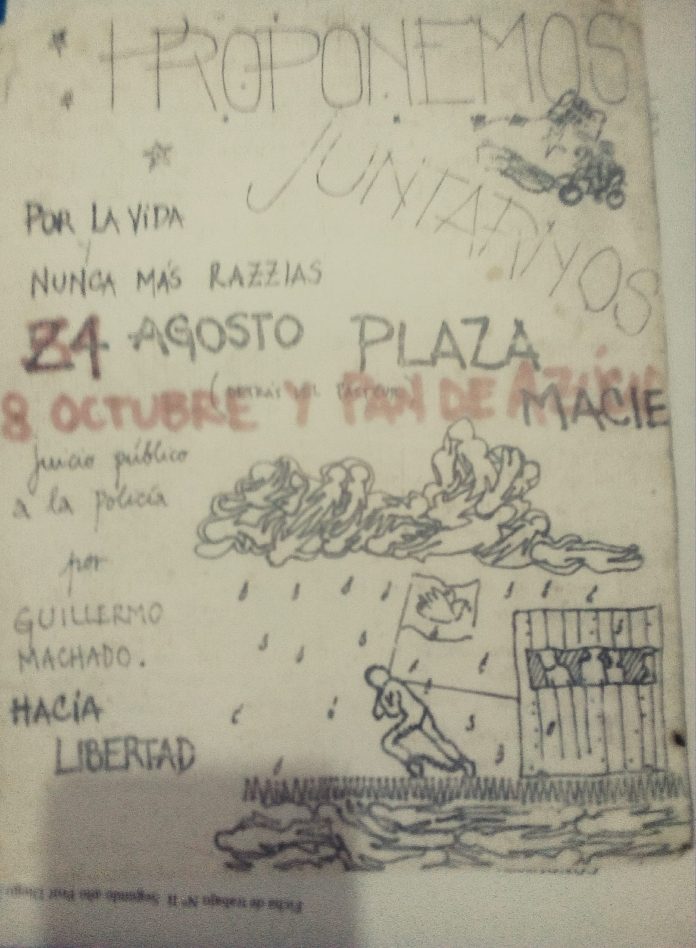 PROPONEMOS
JUNTARNOS
POR LA VIDA
Y
NUNCA MÁS RAZZIAS
24 AGOSTO PLAZA
MACIE
8 OCTUBRE Y PAN DE AZÚCAR
juicio público
a la policía
por
GUILLERMO
MACHADO.
HACIA
LIBERTAD
Ficha de trabajo Nº II Segundo año Prof Diego